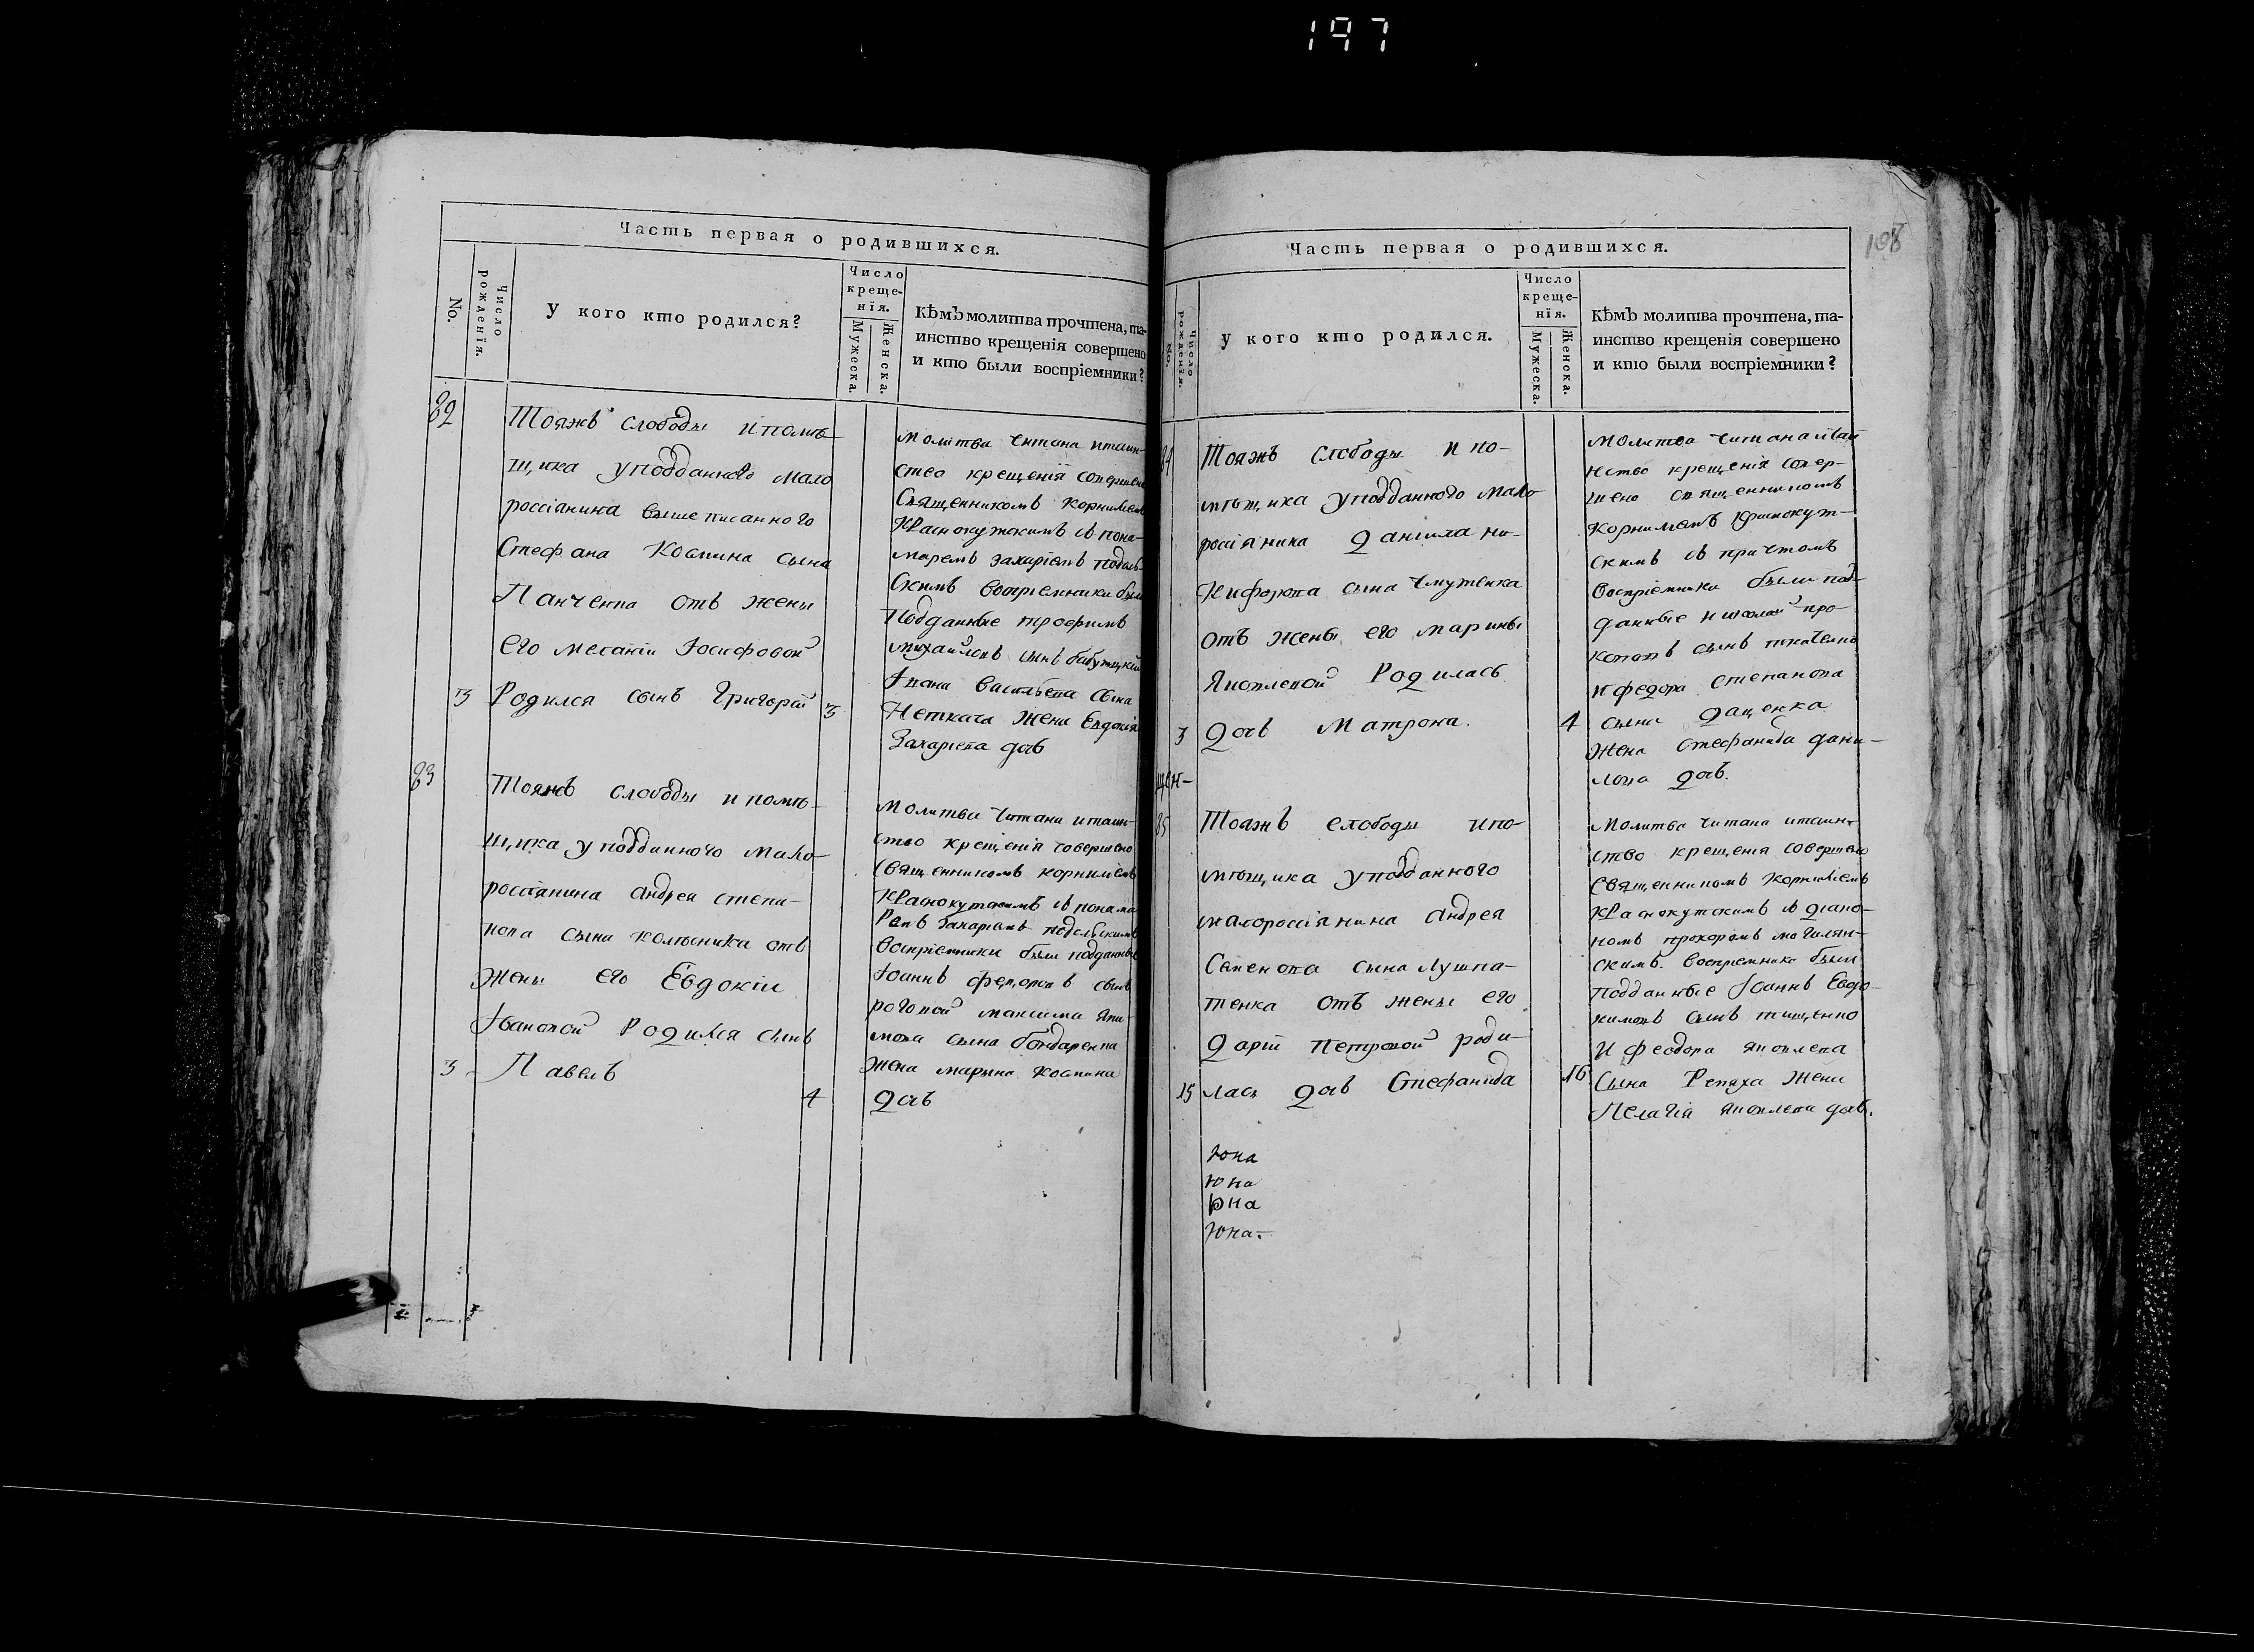 197
Часть первая о родившихся.
No.
Число рожденїя.
У кого кто родился?
Число
креще-
нїя.
Мужеска.
Женска.
Кѣмъ молитва прочтена, та-
инство крещенїя совершено
и кто были воспріемники?
82
Тояжъ слободы и помѣ-
щика уподданного мало
россіанина вышеписанного
Стефана Космина сына
Панченка отъ жены
его меланіи Іосифовой
3 Родился сынъ Григорій 3
молитва читана итаин-
ство крещенія совершено
Священникомъ корниліемъ
Краснокутскимъ съ пона-
маремъ захаріемъ подоль-
скимъ воспріемники были
Подданные трофимъ
михайловъ сынъ
Ивана Васильева сына
Неткача жена Евдокія
Захаріева дочь
83
Тояжъ слободы и помѣ-
щика уподданного мало-
россіанина андрея степа-
нова сына колѣсника отъ
жены его Евдокіи
Ивановой Родился сынъ
3 - Павелъ 4
Молитва читана итаин-
ство крещенія совершено
священникомъ корниліемъ
Краснокутскимъ съ понама
ремъ захаріемъ подольскимъ
воспріемники были подданные
Іоаннъ сынъ
роговой максима яки-
мова сына бондаренка
жена марына космина
дочь
108
Часть первая о родившихся.
No.
Число рожденїя.
У кого кто родился.
Число
креще-
нїя.
Мужеска.
Женска.
Кѣмъ молитва прочтена, та-
инство крещенія совершено
и кто были воспріемники?
84
Тояжъ слободы и по-
мѣщика уподданного мало
россіяника данила ни-
кифорова сына чмуженка
отъ жены его марины
Яковлевой Родилась
3 дочь Матрона. 4
молитва читана итаи
нство крещенія совер-
шено священникомъ
корниліемъ краснокут-
скимъ съ причтомъ
воспріемники были под-
данные николай про-
коповъ сынъ ткаченко
и федора степанова
сына даценка
жена стефанида дани-
лова дочь.
85
Тояжъ слободы ипо
мѣщика уподданного
малороссіянина андрея
Семенова сына лушпа-
тенка отъ жены его
Даріи петровой роди-
15 лась дочь Стефанида 16
Молитва читана итаин-
ство крещенія совершено
священникомъ корниліемъ
краснокутскимъ съ діако-
номъ прохоромъ могилян-
скимъ. воспріемники были
Подданные Іоаннъ Евдо-
кимовъ сынъ тищенко
и феодора яковлева
сына Репяха жена
Пелагія яковлева дочь.
юна
юна
рна
юна.